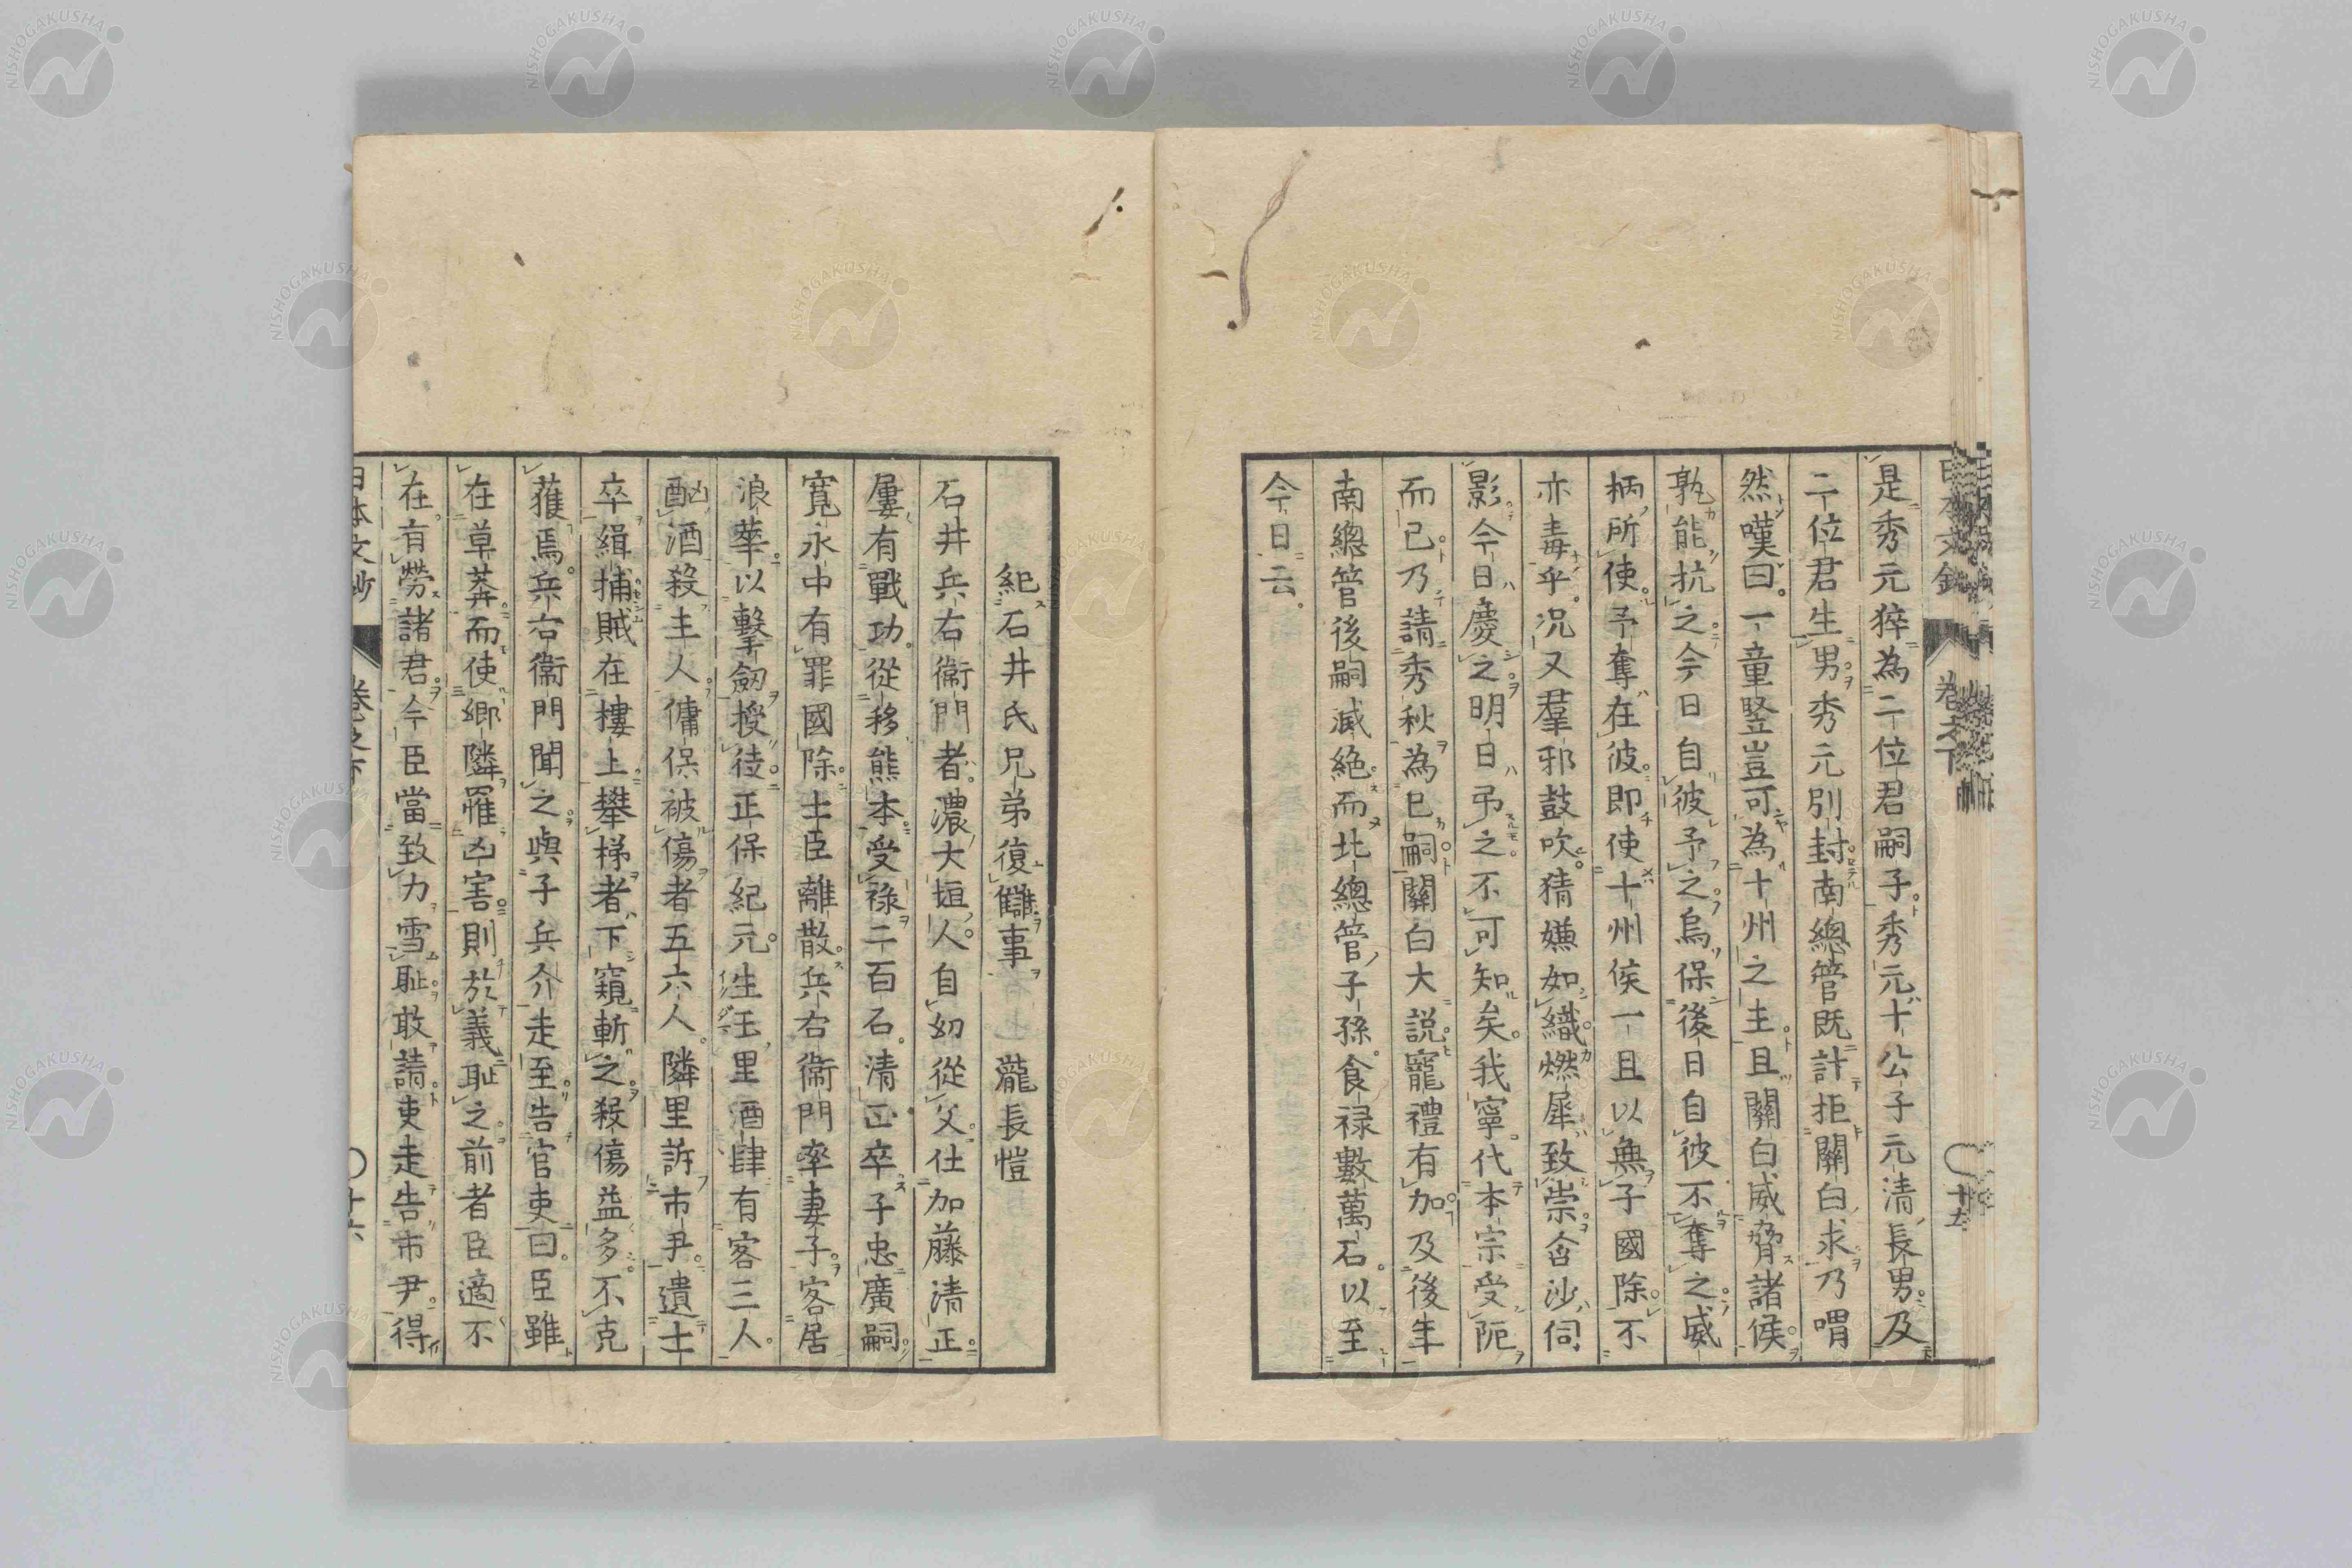 是秀元猝為二位君嗣子秀元十公子元清長男及
二位君生男秀元別封南總管既計拒關白求乃喟
然嘆曰一童豎豈可為十州之主且關白威脅諸侯
孰能抗之今日自彼予之烏保後日自彼不奪之威
柄所使予奪在彼即使十州侯一旦以無子國除不
亦毒乎況又羣邪鼓吹猜嫌如織燃犀致崇含沙伺
影今日慶之明日弔之不可知矣我寧代本宗受阨
而已乃請秀秋為已嗣關白大說寵禮有加及後年
南總管後嗣滅絕而北總管子孫食祿數萬石以至
今日云
紀石井氏兄弟復讎事 瀧長愷
石井兵右衞門者濃大垣人自幼從父仕加藤清正
屢有戰功從移熊本受祿二百石清正卒子忠廣嗣
寬永中有罪國除士臣離散兵右衞門率妻子客居
浪華以擊劒授徒正保紀元生玉里酒肆有客三人
酗酒殺主人傭保被傷者五六人隣里訴市尹遣士
卒緝捕賊在樓上攀梯者下窺斬之殺傷益多不克
獲焉兵右衞門聞之與子兵介走至告官吏曰臣雖
在草莽而使鄉隣罹凶害則於義恥之前者臣適不
在有勞諸君今臣當致力雪恥敢請吏走告市尹得
日本文鈔 卷之下 十六